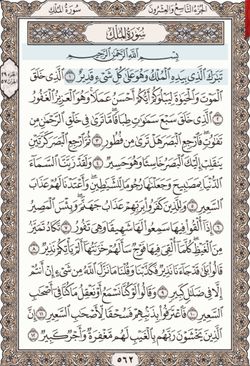 سُورَةُ المُلْكِ الجُزْءُ التَّاسِعُ وَالعِشْرُونَ
سُورَةُ المُلْكِ
بِسْمِ ٱللَّهِ ٱلرَّحْمَٰنِ ٱلرَّحِيمِ
تَبَٰرَكَ ٱلَّذِي بِيَدِهِ ٱلْمُلْكُ وَهُوَ عَلَىٰ كُلِّ شَيْءٍ قَدِيرٌ ١ ٱلَّذِي خَلَقَ
ٱلْمَوْتَ وَٱلْحَيَوٰةَ لِيَبْلُوَكُمْ أَيُّكُمْ أَحْسَنُ عَمَلًا وَهُوَ ٱلْعَزِيزُ ٱلْغَفُورُ
٢ ٱلَّذِي خَلَقَ سَبْعَ سَمَٰوَٰتٍ طِبَاقًا مَّا تَرَىٰ فِي خَلْقِ ٱلرَّحْمَٰنِ مِن
تَفَٰوُتٍ فَٱرْجِعِ ٱلْبَصَرَ هَلْ تَرَىٰ مِن فُطُورٍ ٣ ثُمَّ ٱرْجِعِ ٱلْبَصَرَ كَرَّتَيْنِ
يَنقَلِبْ إِلَيْكَ ٱلْبَصَرُ خَاسِئًا وَهُوَ حَسِيرٌ ٤ وَلَقَدْ زَيَّنَّا ٱلسَّمَآءَ
ٱلدُّنْيَا بِمَصَٰبِيحَ وَجَعَلْنَٰهَا رُجُومًا لِّلشَّيَٰطِينِ وَأَعْتَدْنَا لَهُمْ عَذَابَ
ٱلسَّعِيرِ ٥ وَلِلَّذِينَ كَفَرُوا۟ بِرَبِّهِمْ عَذَابُ جَهَنَّمَ وَبِئْسَ ٱلْمَصِيرُ
٦ إِذَآ أُلْقُوا۟ فِيهَا سَمِعُوا۟ لَهَا شَهِيقًا وَهِيَ تَفُورُ ٧ تَكَادُ تَمَيَّزُ
مِنَ ٱلْغَيْظِ كُلَّمَآ أُلْقِيَ فِيهَا فَوْجٌ سَأَلَهُمْ خَزَنَتُهَآ أَلَمْ يَأْتِكُمْ نَذِيرٌ ٨
قَالُوا۟ بَلَىٰ قَدْ جَآءَنَا نَذِيرٌ فَكَذَّبْنَا وَقُلْنَا مَا نَزَّلَ ٱللَّهُ مِن شَيْءٍ إِنْ أَنتُمْ
إِلَّا فِي ضَلَٰلٍ كَبِيرٍ ٩ وَقَالُوا۟ لَوْ كُنَّا نَسْمَعُ أَوْ نَعْقِلُ مَا كُنَّا فِيٓ أَصْحَٰبِ
ٱلسَّعِيرِ ١٠ فَٱعْتَرَفُوا۟ بِذَنۢبِهِمْ فَسُحْقًا لِّأَصْحَٰبِ ٱلسَّعِيرِ ١١ إِنَّ
ٱلَّذِينَ يَخْشَوْنَ رَبَّهُم بِٱلْغَيْبِ لَهُم مَّغْفِرَةٌ وَأَجْرٌ كَبِيرٌ ١٢
٥٦٢